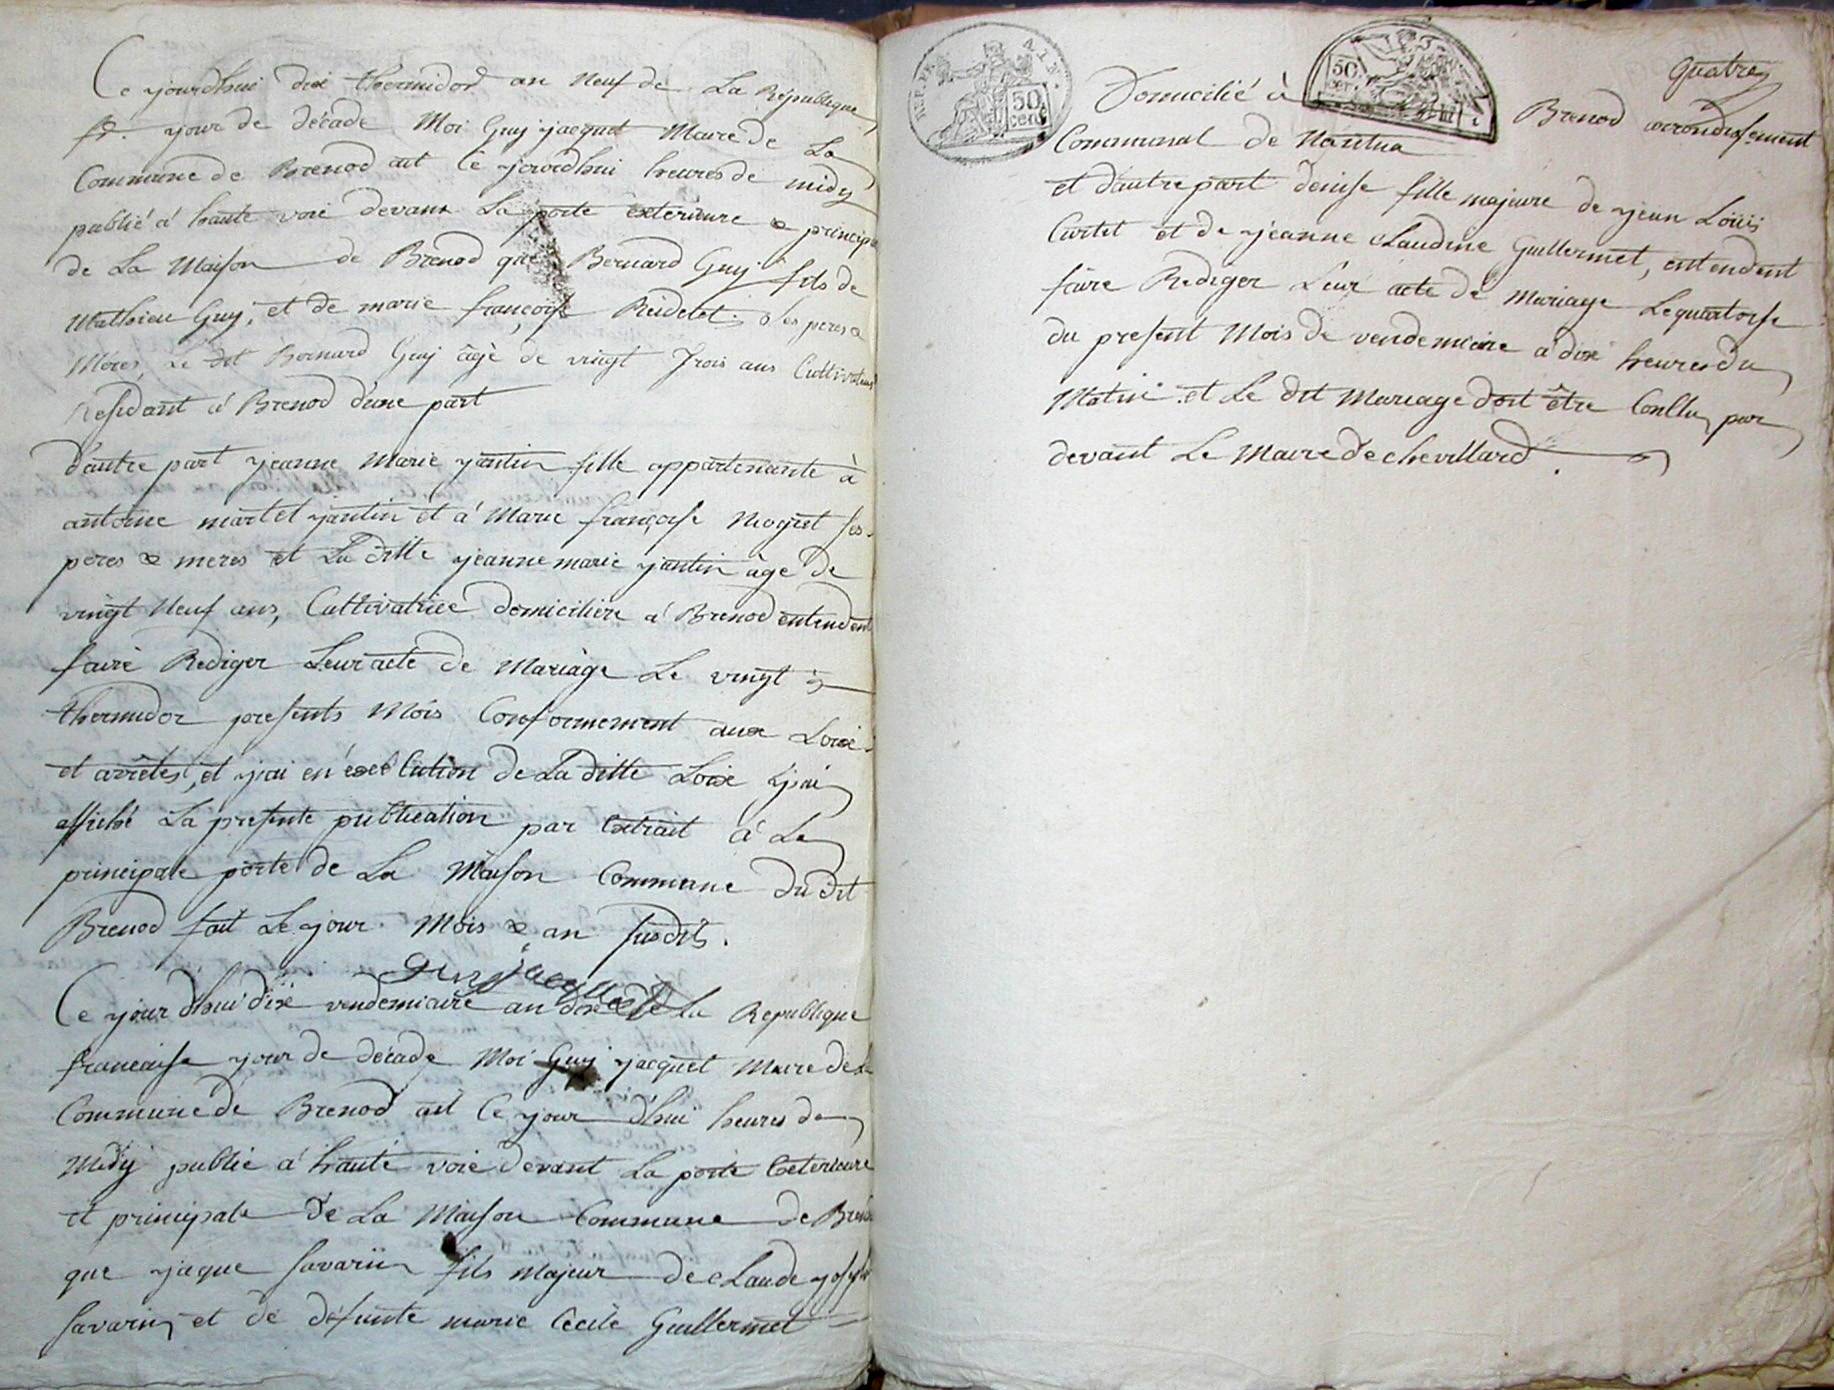 Ce yourdhui dix thermidor an Neuf de La République
fr. your de décade Moi Guy yacquet Maire de La
Commune de Brenod ait Ce yourdhui heures de midy
publié á haute voie devant La porte exterieure & principa
de La Maison de Brenod que Bernard Guy fils de
Mathieu Guy, et de marie françoise Reidelet ses peres &
Meres, Le dit Bernard Guy âgè de vingt Trois ans Cultivateur
Residant á Brenod d'une part
d'autre part yeanne Marie yantin fille appartenante à
antoine martel yantin et á Marie françoise Mogret ses
peres & meres et La ditte yeanne marie yantin àge de
vingt Neuf ans, Cultivatrice domiciliere á Brenod entendent
faire Rediger Leur acte de Mariàge Le vingt
thermidor presents Mois Conformement aux Loix
et arrètes, et yai en éxecCution de La ditte Loix
affiché La presente publication par Extrait á La
principale porte de La Maison Commune du dit
Brenod fait Le your Mois & an susdits.
Guy jacquet
Ce your d'hui dix vendemiaire an dix de La Republique
francaise your de décade Moi Guy yacquet Maire de La
Commune de Brenod ait Ce your d'hui heures de
Midy publié á haute voie devant La porte Exterieure
et principale de La Maison Commune de Brenod
que yaque Savarin fils Majeur de Claude yoseph
Savarin et de défunte marie Cécile Guillermet
quatre
REP. FRA.
50 cent.
50 cen.
Domicilié à Brenod arrondissement
Communal de Nantua
et d'autre part denise fille majeure de yean Loüis
Curtet et de yeanne Claudine Guillermet, entendent
faire Rediger Leur acte de Mariage Le quatorse
du present Mois de vendemiaire a dix heures du
Matin et Le dit Mariage doit être Conllu par
devant Le Maire de chevillard.